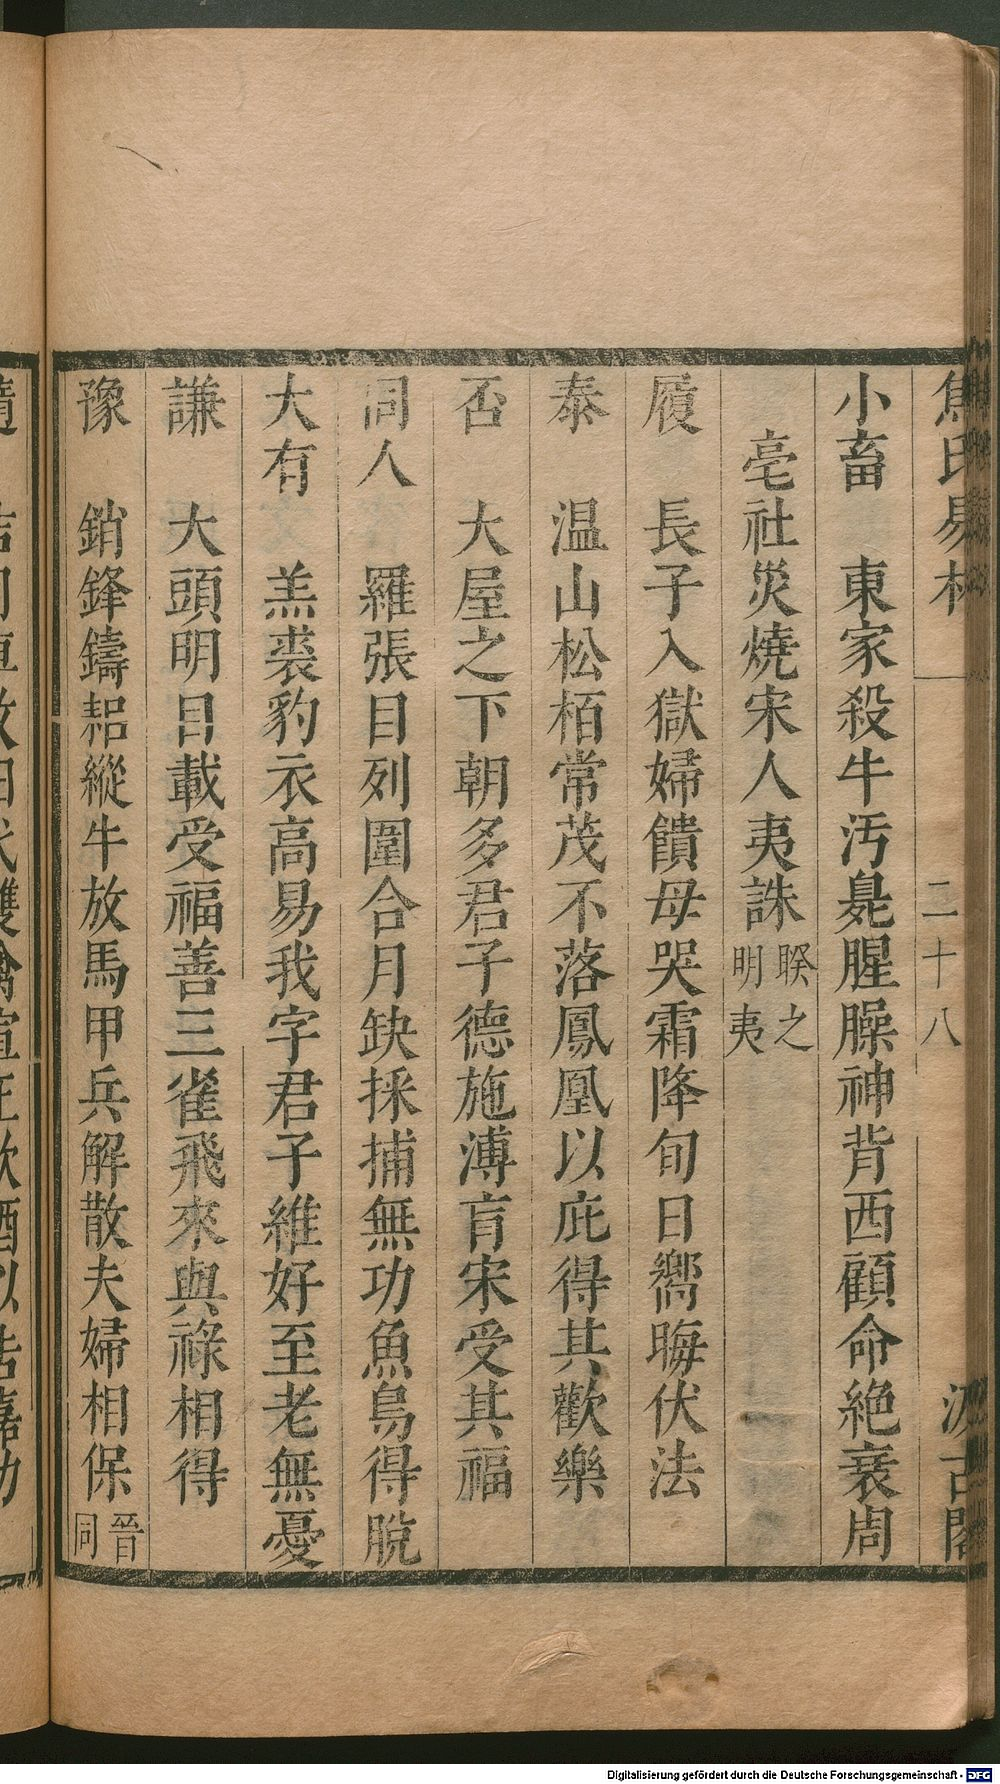 焦氏易林 二十八 汲古閣
小畜 東家殺牛汚臰腥臊神背西顧命絶衰周
亳社災燒宋人夷誅 睽之明夷
履 長子入獄婦饋母哭霜降旬日嚮晦伏法
泰 温山松栢常茂不落鳳凰以庇得其歡樂
否 大屋之下朝多君子德施溥育宋受其福
同人 羅張目列圍合月缺採捕無功魚鳥得脫
大有 羔裘豹衣高易我字君子維好至老無憂
謙 大頭明目載受福善三雀飛來與祿相得
豫 銷鋒鑄耜縱牛放馬甲兵解散夫婦相保 晉同
Digitalisierung gefördert durch die Deutsche Forschungsgemeinschaft - DFG